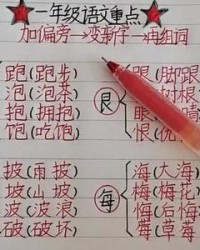 一年级语文重点
加偏旁→变新字→再组词
跑(跑步)
泡(泡茶)
抱(拥抱)
饱(吃饱)
艮
跟(脚跟
根(树根
眼(眼睛
恨(
披(雨披)
坡(山坡)
波(波浪)
破(破坏)
每
海(大海)
梅(梅花)
悔(后悔)
莓(草莓)